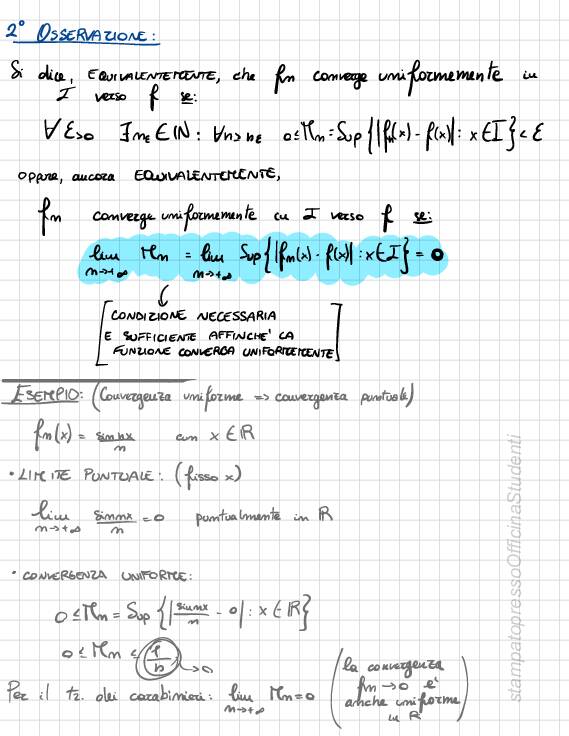 2° OSSERVAZIONE:
Si dice, EQUIVALENTEMENTE, che fn converge uniformemente in
I verso f se:
∀ε>0 ∃nε∈ℕ: ∀n>nε 0≤Mn=Sup{|fn(x)-f(x)|: x∈I}<ε
oppure, ancora EQUIVALENTEMENTE,
fn converge uniformemente in I verso f se:
lim n→+∞ Mn = lim n→+∞ Sup{|fn(x)-f(x)|: x∈I} = 0
[CONDIZIONE NECESSARIA
E SUFFICIENTE AFFINCHE' LA
FUNZIONE CONVERGA UNIFORMEMENTE]
ESEMPIO: (Convergenza uniforme => convergenza puntuale)
fn(x) = sinnx/n con x∈ℝ
• LIMITE PUNTUALE: (fisso x)
lim n→+∞ sinnx/n = 0 puntualmente in ℝ
• CONVERGENZA UNIFORME:
0≤Mn=Sup{|sinnx/n - 0|: x∈ℝ}
0≤Mn≤1/n →0
Per il tz. dei carabinieri: lim n→+∞ Mn=0 (la convergenza
fn→0 e'
anche uniforme
in ℝ)
stampatopressoOfficinaStudenti